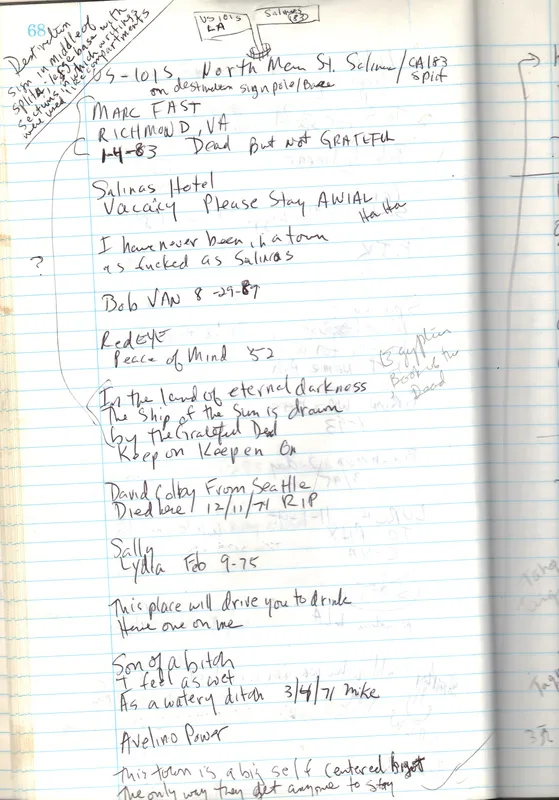 68
US 101 S
LA
Salinas
183
Destination
sign in middle of
split. large base with
sections in which writings
were used like compartments
US-101S, North Main St. Salinas / CA183
on destination sign pole/Base
split
MARC FAST
RICHMOND, VA
1-4-83 Dead But Not GRATEFUL
?
Salinas Hotel
Vacancy Please Stay AWIAL
Ha Ha
I have never been in a town
as fucked as Salinas
Bob VAN 8-29-87
RedEYE
Peace of Mind '52
In the land of eternal darkness
The Ship of the Sun is drawn
by the Grateful Dead
Keep on Keepen On
Egyptian
Book of the
Dead
David Colby From Seattle
Died here 12/11/71 RIP
Sally
Lydia Feb 9-75
This place will drive you to drink
Have one on me
Son of a bitch
I feel as wet
As a watery ditch 3/4/71 Mike
Avelino Power
This town is a big self centered bigot
The only way they get anyone to stay